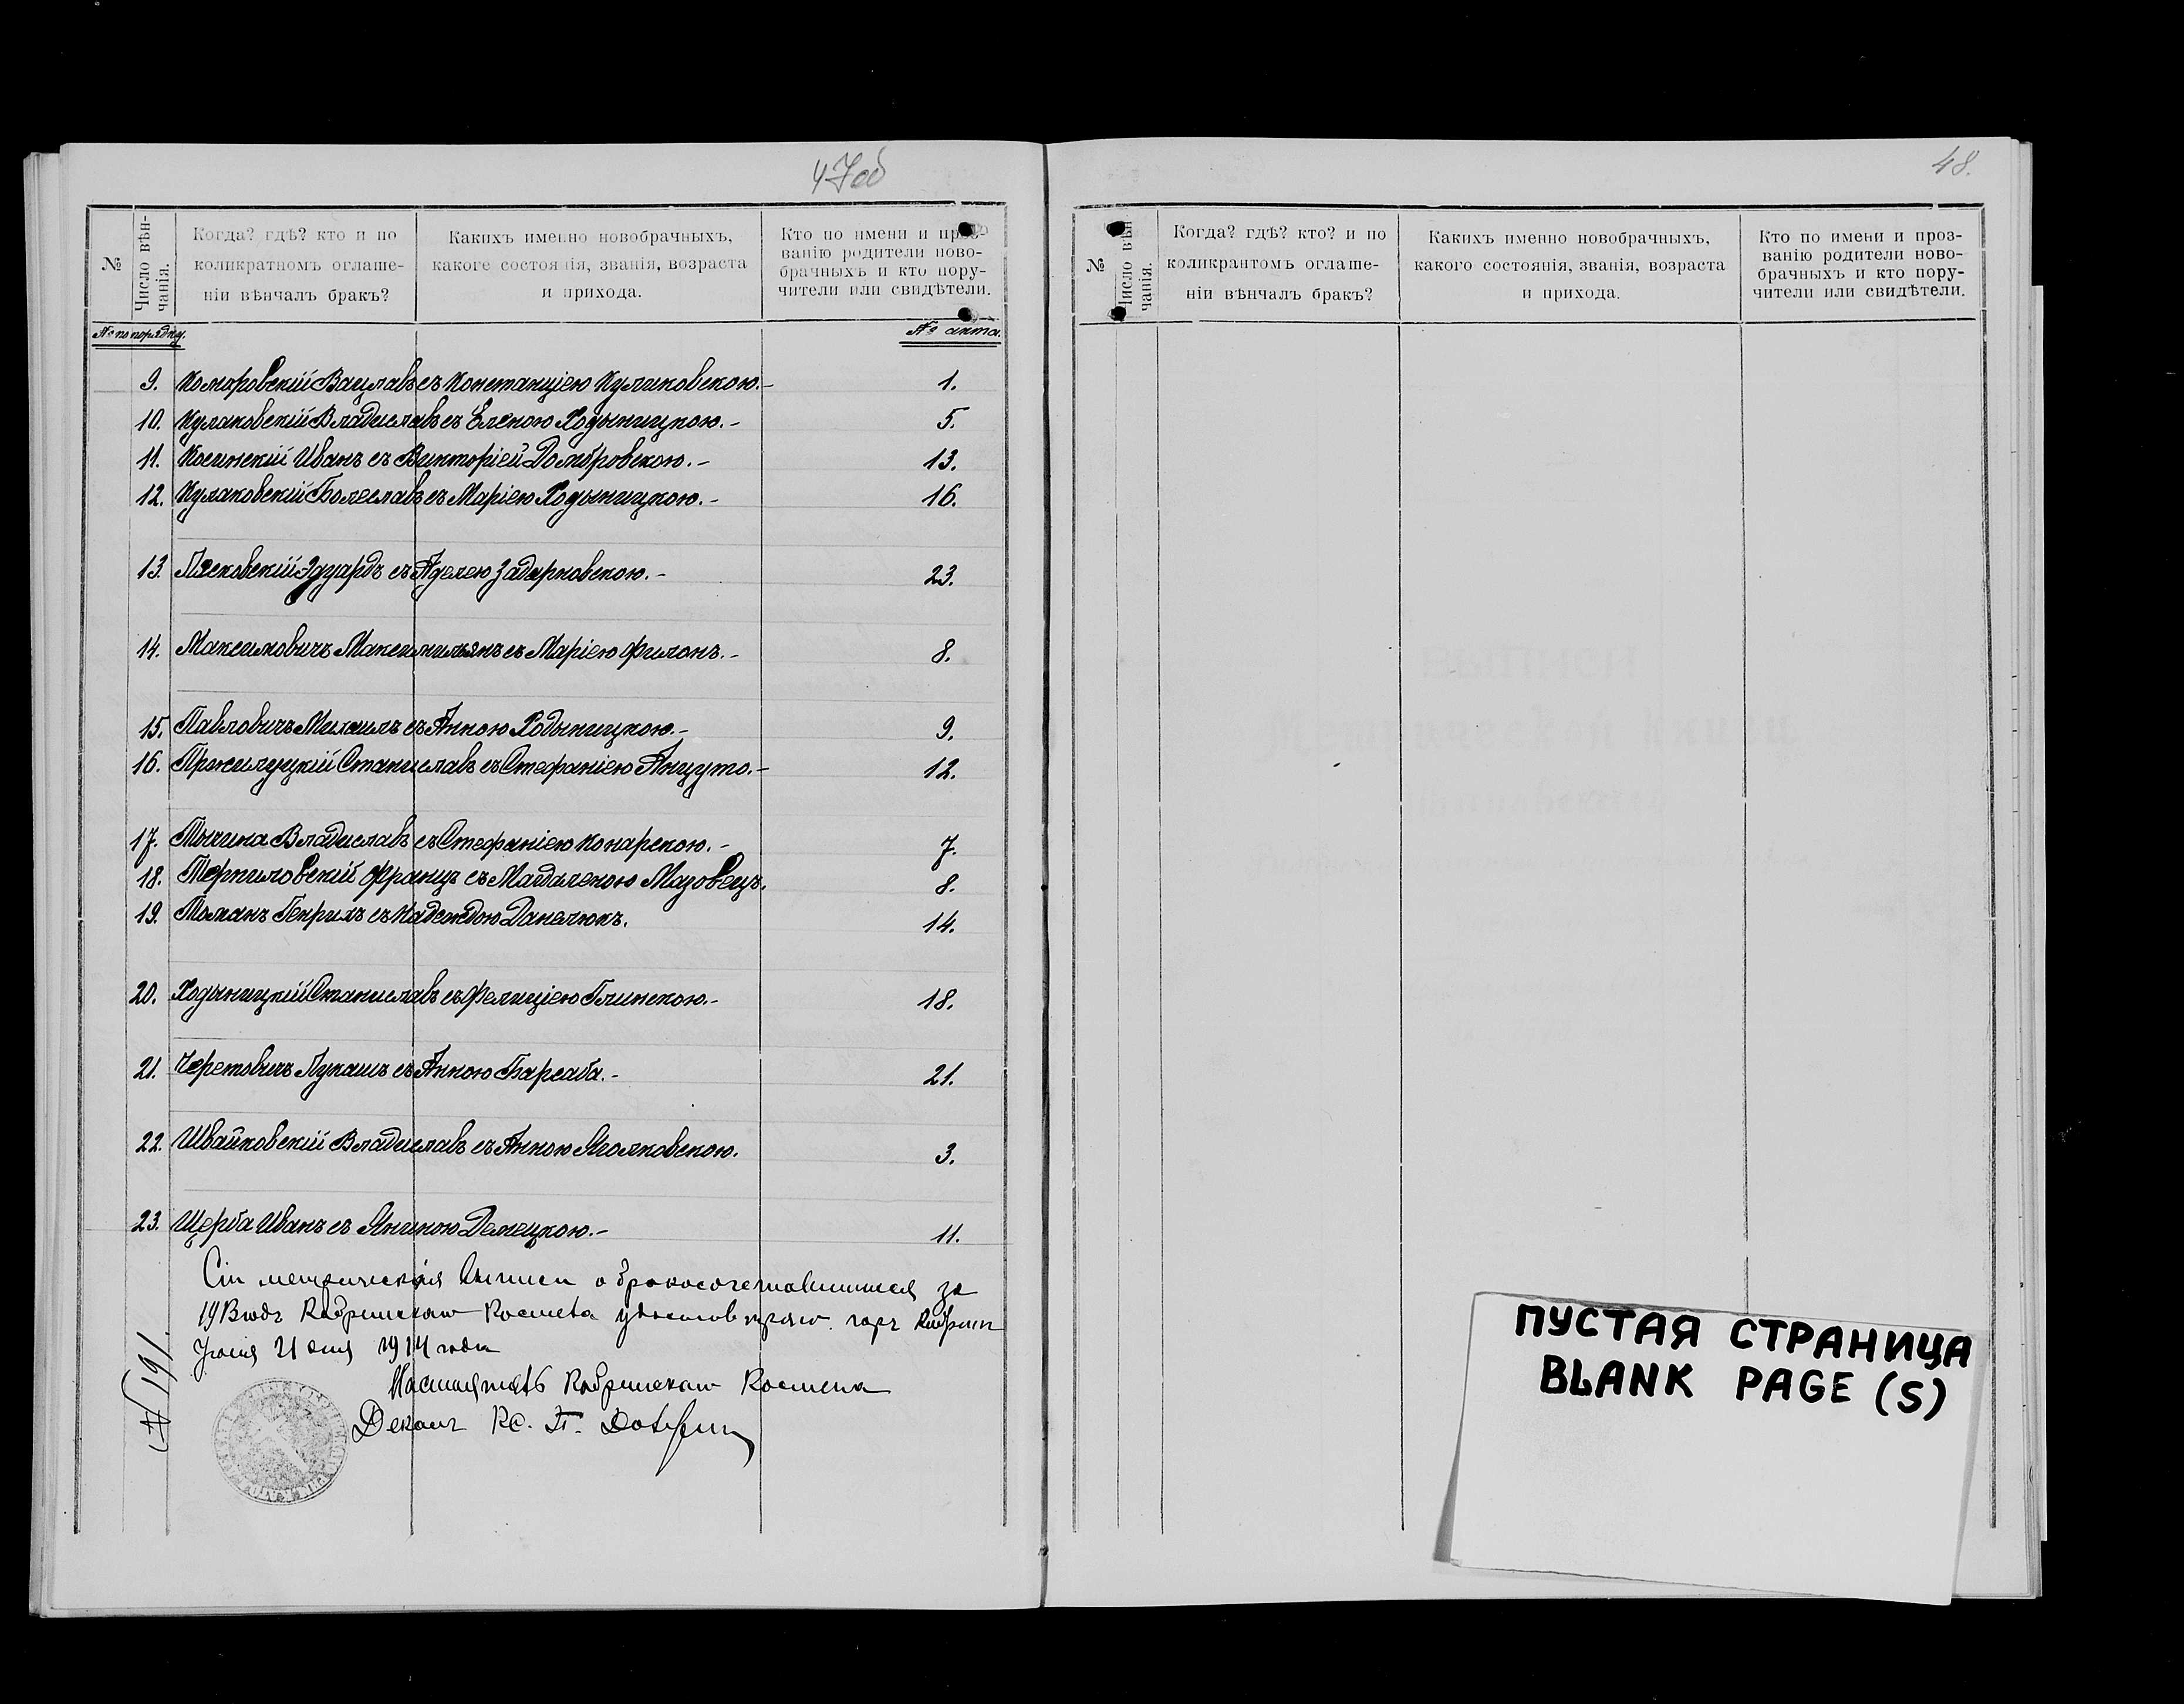 47об
№
Число вѣн-
чанія.
Когда? гдѣ? кто и по
коликратномъ оглаше-
ніи вѣнчалъ бракъ?
Какихъ именно новобрачныхъ,
какого состоянія, званія, возраста
и прихода.
Кто по имени и проз-
ванію родители ново-
брачныхъ и кто пору-
чители или свидѣтели.
№ по порядку. № акта.
9. Коморовскій Вацлавъ съ Констанціею Куликовскою.- 1.
10. Кулаковскій Владиславъ съ Еленою Ходыницкою.- 5.
11. Косинскій Иванъ съ Викторіей Домбровскою.- 13.
12. Кулаковскій Болеславъ съ Маріею Ходыницкою.- 16.
13. Лясковскій Эдуардъ съ Аделею Задарновскою.- 23.
14. Максимовичъ Максимильянъ съ Маріею Филонъ.- 8.
15. Павловичъ Михаилъ съ Анною Ходыницкою.- 9.
16. Пржилуцкій Станиславъ съ Стефаніею Анцуто.- 12.
17. Тычина Владиславъ съ Стефаніею Конарскою.- 7.
18. Терпиловскій Францъ съ Магдаленою Мазовецъ. 8.
19. Томанъ Генрихъ съ Надеждою Данелюкъ. 14.
20. Ходыницкій Станиславъ съ Фелиціею Глинскою.- 18.
21. Черетовичъ Лукашъ съ Анною Барсаба.- 21.
22. Швайковскій Владиславъ съ Анною Яголковскою. 3.
23. Щерба Иванъ съ Яниною Демецкою.- 11.
Сіи метрическія выписи о бракосочетавшихся за
1913 годъ Кобринскаго Костела удостовѣряю. гор. Кобринъ
Іюня 21 дня 1914 года
Настоятель Кобринскаго Костела
Деканъ Кс. П.
№ 191.
48.
№
Число вѣн
чанія.
Когда? гдѣ? кто? и по
коликрантомъ оглаше-
ніи вѣнчалъ бракъ?
Какихъ именно новобрачныхъ,
какого состоянія, званія, возраста
и прихода.
Кто по имени и проз-
ванію родители ново-
брачныхъ и кто пору-
чители или свидѣтели.
ПУСТАЯ СТРАНИЦА
BLANK PAGE (S)